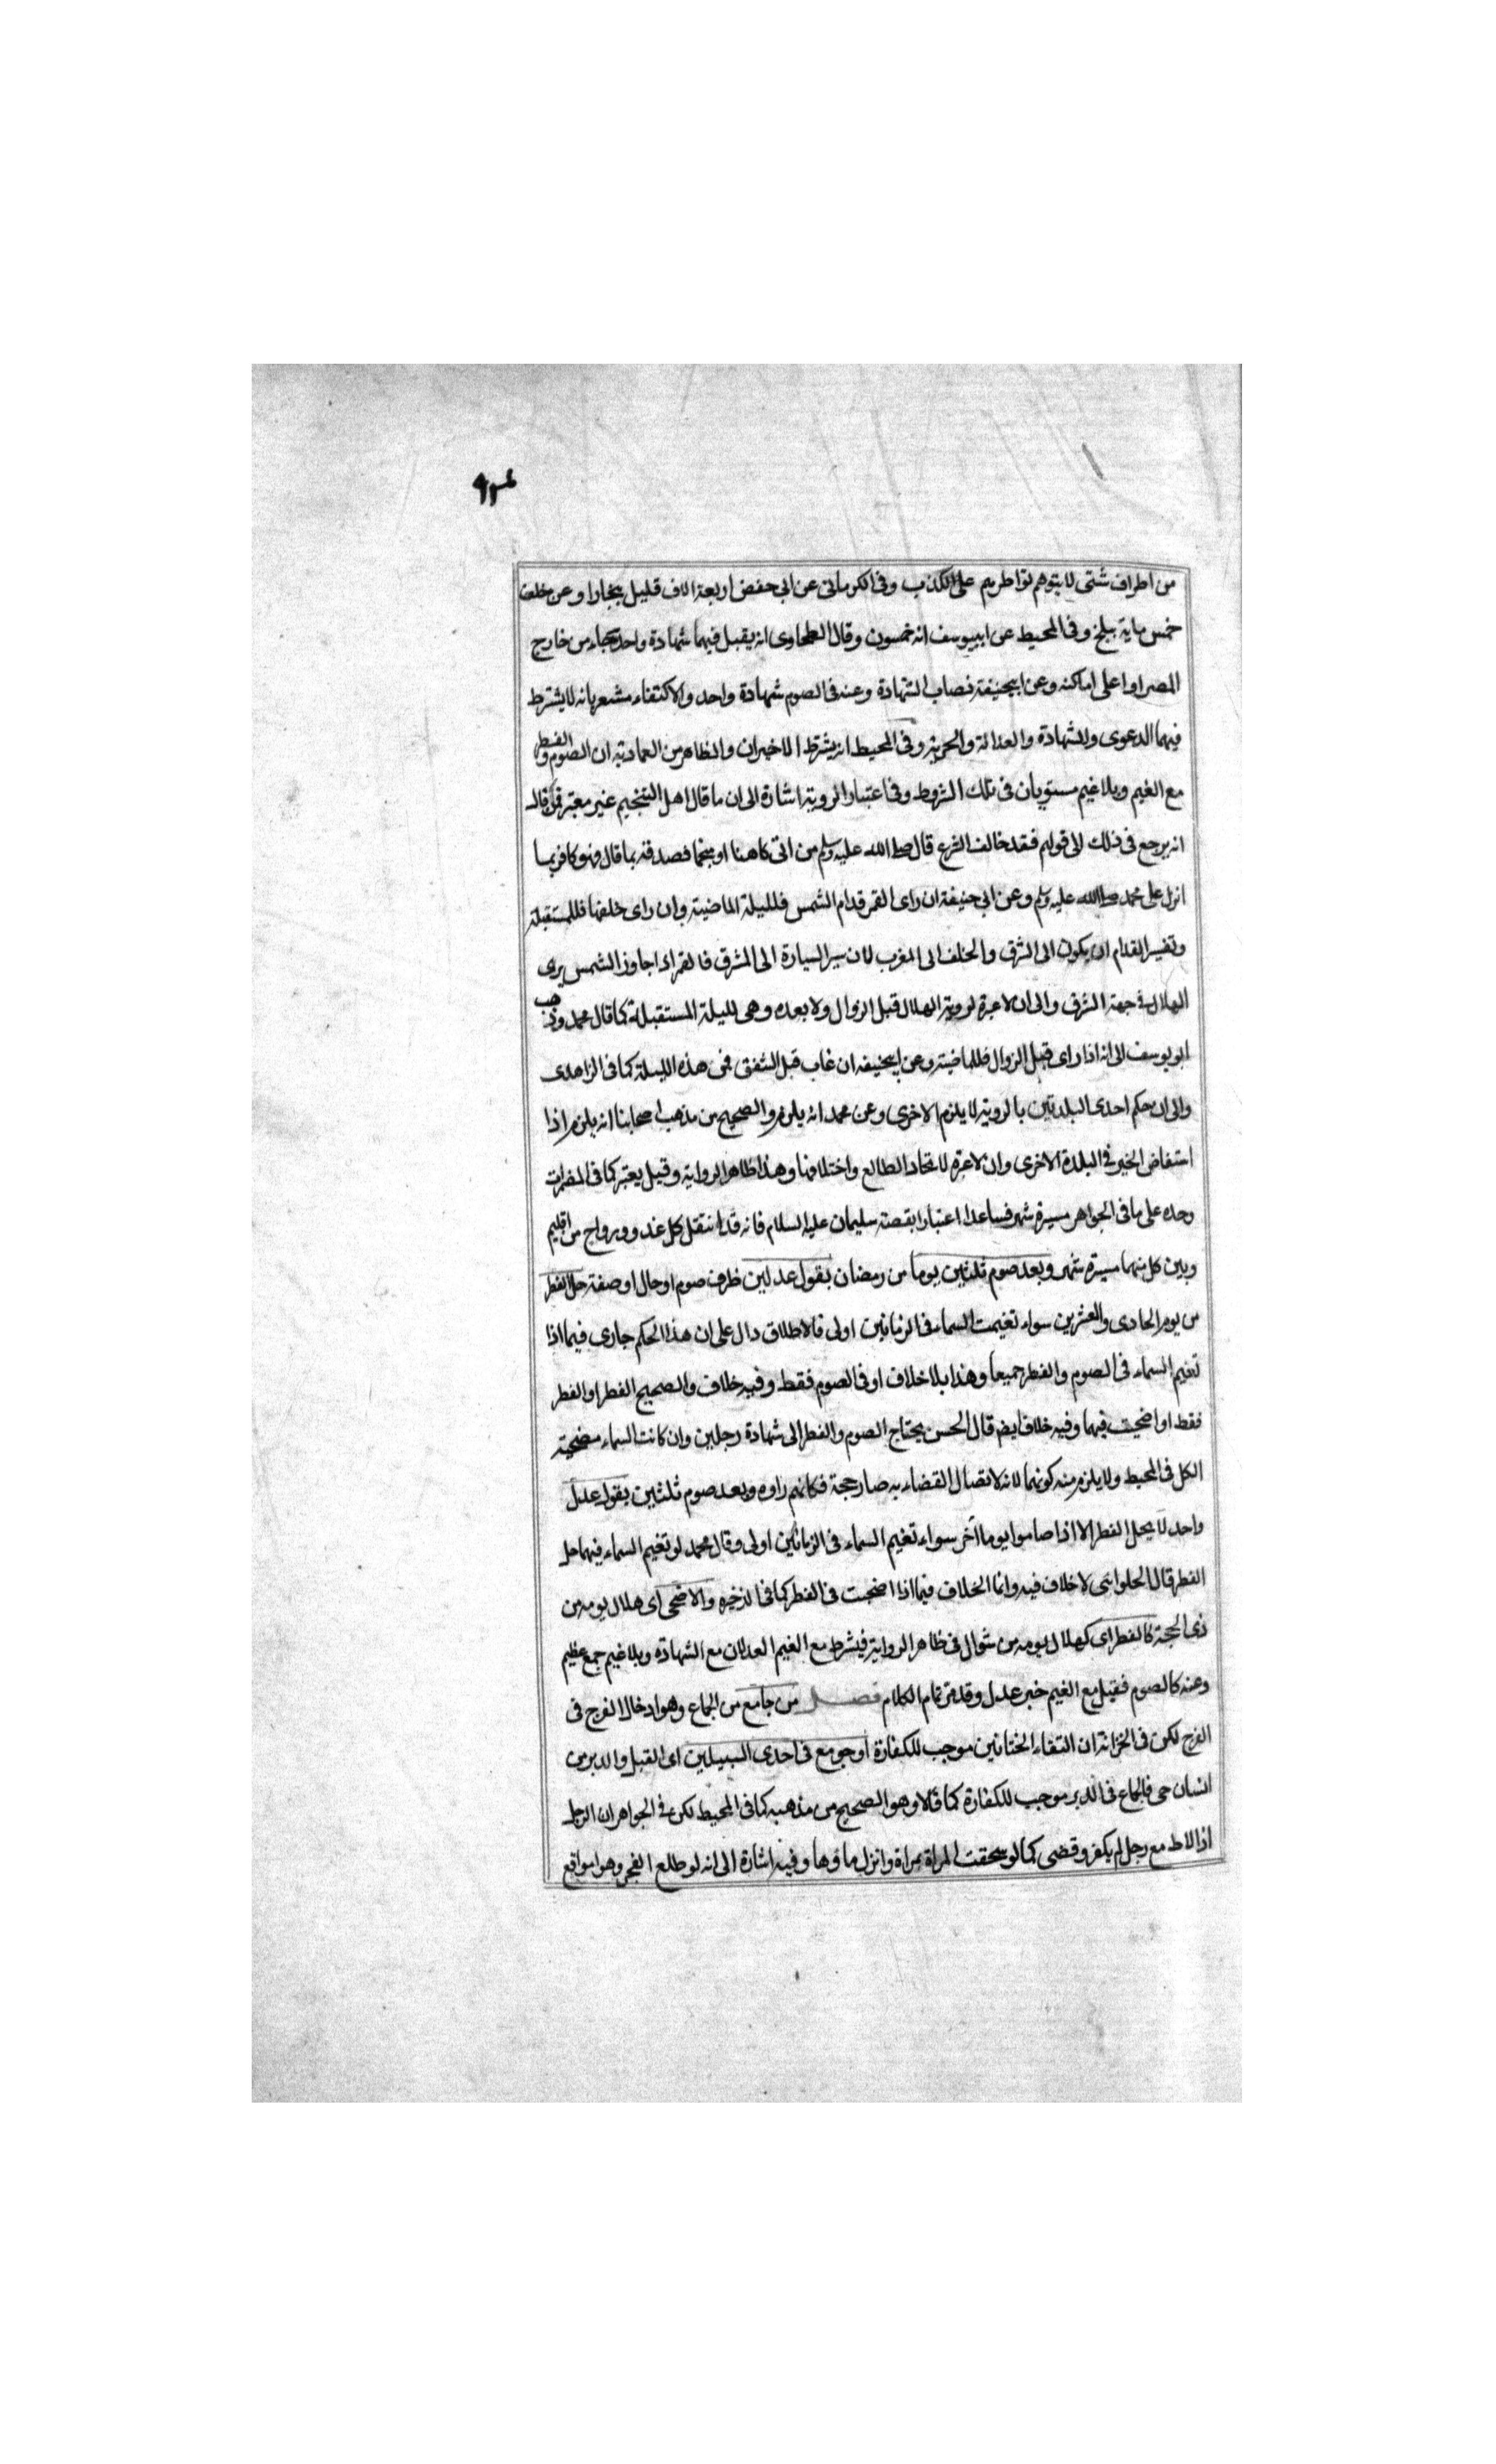 من اطراف شتى لا يتوهم تواطرهم على الكذب وفى الكرمانى عن ابى حفص اربعة الاف قليل ببخارا وعن خلف
خمس ماية ببلخ وفى المحيط عن ابييوسف انه خمسون وقال الطحاوى انه يقبل فيهما شهادة واحد جاء من خارج
المصر او اعلى اماكنه وعن ابيحنيفة نصاب الشهادة وعنه فى الصوم شهادة واحد والاكتفاء مشعر بانه لا يشترط
فيهما الدعوى والشهادة والعدالة والحرية وفى المحيط انه يشترط الاخيران والظاهر من العمادية ان الصوم والفطر
مع الغيم وبلا غيم مستويان فى تلك الشروط وفى اعتبار الروية اشارة الى ان ما قال اهل التنجيم غير معتبر فمن قال
انه يرجع فى ذلك الى قولهم فقد خالف الشرع قال صلى الله عليه وسلم من اتى كاهنا او منجما فصدقه بما قال فهو كافر بما
انزل على محمد صلى الله عليه وسلم وعن ابى حنيفة ان راى القمر قدام الشمس فلليلة الماضية وان راى خلفها فللمستقبلة
وتفسير القدام ان يكون الى الشرق والخلف الى المغرب لان سير السيارة الى المشرق فالقمر اذا جاوز الشمس يرى
الهلال فى جهة الشرق والى ان لا عبرة لروية الهلال قبل الزوال ولا بعده وهى لليلة المستقبلة كما قال محمد وذهب
ابو يوسف الى انه اذا راى قبل الزوال فللماضية وعن ابيحنيفه ان غاب قبل الشفق فمن هذه الليلة كما فى الزاهدى
والى ان حكم احدى البلدتين بالروية لا يلزم الاخرى وعن محمد انه يلزم والصحيح من مذهب اصحابنا انه يلزم اذا
استفاض الخبر فى البلدة الاخرى وان لا عبرة لاتحاد الطالع واختلافها وهذا ظاهر الرواية وقيل يعتبر كما فى المضمرات
وحده على ما فى الجواهر مسيرة شهر فصاعدا اعتبارا بقصة سليمان عليه السلام فانه قد انتقل كل غدو ورواح من اقليم
وبين كل منهما مسيرة شهر وبعد صوم ثلثين يوما من رمضان بقول عدلين ظرف صوم او حال او صفة حل الفطر
من يوم الحادى والعشرين سواء تغيمت السماء فى الزمانين اولى فالاطلاق دال على ان هذا الحكم جارى فيما اذا
تغيم السماء فى الصوم والفطر جميعا وهذا بلا خلاف او فى الصوم فقط وفيه خلاف والصحيح الفطر او الفطر
فقط او اضحيت فيهما وفيه خلاف ايضم قال الحسن يحتاج الصوم والفطر الى شهادة رجلين وان كانت السماء مضحية
الكل فى المحيط ولا يلزم منه كونهما لانه لاتصال القضاء به صار حجة فكانهم راوه وبعد صوم ثلثين بقول عدل
واحد لا يحل الفطر الا اذا صاموا يوما آخر سواء تغيم السماء فى الزمانين اولى وقال محمد لو تغيم السماء فيهما حل
الفطر قال الحلوانى لا خلاف فيه وانما الخلاف فيما اذا اضحيت فى الفطر كما فى الذخيره والاضحى اى هلال يومه من
ذى الحجة كالفطر اى كهلال يومه من شوال فى ظاهر الرواية فيشرط مع الغيم العدلان مع الشهادة وبلا غيم جمع عظيم
وعنه كالصوم فقيل مع الغيم خبر عدل وقد مر تمام الكلام فصل من جامع من الجماع وهو ادخال الفرج فى
الفرج لكن فى الخزانة ان التقاء الختانين موجب للكفارة او جومع فى احدى السبيلين اى القبل والدبر من
انسان حى فالجماع فى الدبر موجب للكفارة كما قالا وهو الصحيح من مذهبه كما فى المحيط لكن فى الجواهر ان الرجل
اذا لاط مع رجل لم يكفر وقضى كما لو سحقت المراة بمراة وانزل ماؤها وفيه اشارة الى انه لو طلع الفجر وهو مواقع